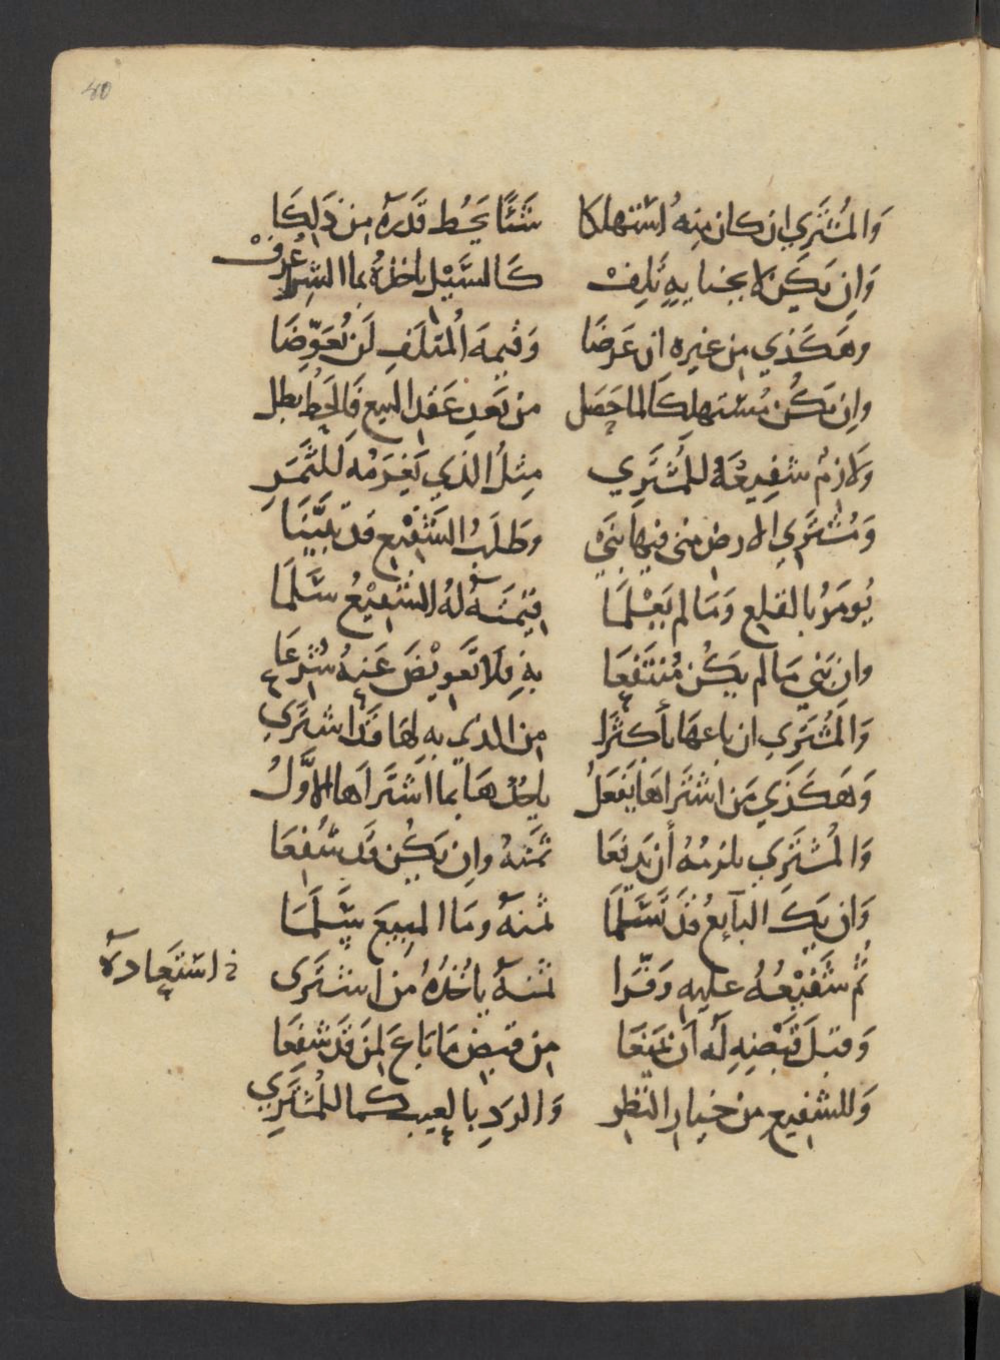 40
وَالمُشْتَرِي ان كان مِنهُ اُسْتَهلكا شَئًا يَحُط قَدْرَهُ مِن ذَلِكَا
وَاِن يَكُن لا بجنايهٍ تَلِفْ كَالسَّيْل ياخذهُ بما الشِرا عُرِفْ
وهَكَذي مِن غيره ان عَرضَا وَقيمه المُتلَفِ لَن تُعَوِّضَا
واِن يكُن مُستهلكًا لما حَصَل من بَعدِ عَقد البيع فَالحَط بطل
وَلَازمٌ شَفِيعَهُ للمُشْتَرِي مِثلُ الذي يَغرَمُه لِلثَّمَرِ
وَمُشْتَرِي الارض متى فيها بَنَىْ وطَلَبُ الشَفْيِع قد تَبَيَّنَا
يُومَرُ بالقلع وَمَا لم يَعْلَمَا قيمَتَهُ لهُ الشَفيْعُ سَلَّمَا
وان بَنى مَا لم يَكُن مُنتَفِعَا بهِ فلا تَعويْضَ عَنهُ شُرِعَا
وَالمُشْتَري ان باعهَا بأكثرَا مِن الذي به لهَا قَد اشتَرى
وَهَكَذَي مَن اشتَراهَا يَفعَلُ ياخُذهَا بما اشتَراهَا الاوَّلُ
وَالمُشْتَرِي يلزمُهُ أن يَدفعَا ثمَنهُ واِن يَكُن قَد شَفَعَا
وَان يَك البآيعُ قد تَسَلَّمَا ثمنهُ ومَا المبيعَ سَلَّمَا
ثُم شَفْيعُهُ عليهِ وَفّرَا ثمَنهُ ياخُذُهُ مَن اشتَرى
خ استَعَادهُ
وَقبلَ قَبْضِهِ لَهُ اَن يَمنَعَا مِن قبضِ مَا بَاعَ لِمَن قَد شَفعَا
وَللشفيعِ مِن خيار النَظر وَالردِ بالعيب كما للمُشْتَرِي